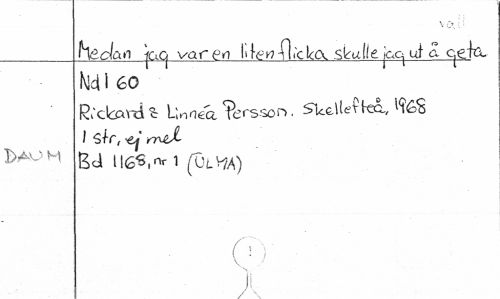 vall
Medan jag var en liten flicka skulle jag ut å geta
Nd I 60
Rickard & Linnéa Persson. Skellefteå, 1968
1 str, ej mel
DAUM Bd 1168, nr 1 (ULMA)